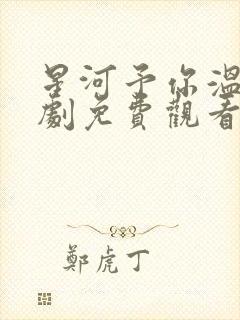 星河予你溫
劇免費觀看
鄭虎丁